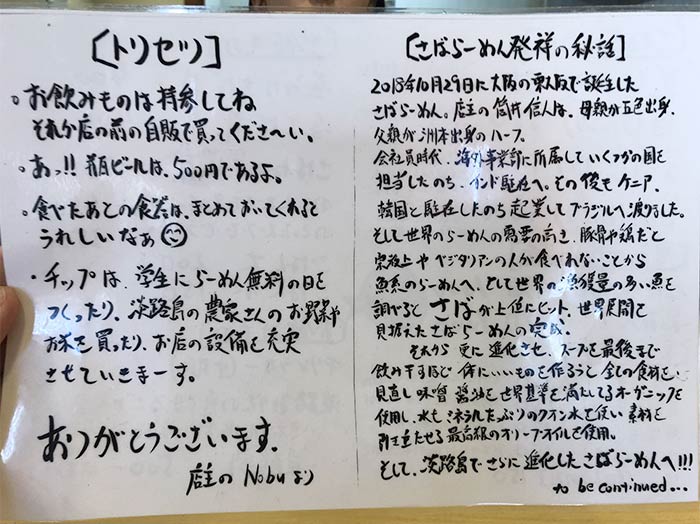 [トリセツ]
。お飲みものは持参してね
それか店の前の自販で買ってくださ〜い。
。あっ!! 瓶ビールは、500円であるよ。
。食べたあとの食器は、まとめておいてくれると
うれしいなぁ
・チップは、学生にらーめん無料の日を
つくったり、淡路島の農家さんのお野菜や
お米を買ったり、お店の設備を充実
させていきまーす。
ありがとうございます。
店主の Nobuより
[さばらーめん発祥の秘話]
2013年10月29日に大阪の東大阪で誕生した
さばらーめん。店主の筒井信人は、母親が五色出身、
父親が洲本出身のハーフ。
会社員時代、海外事業部に所属していくつかの国を
担当したのち、インド駐在へ。その後もケニア、
韓国と駐在したのち起業してブラジルへ渡りました。
そして世界のらーめんの需要の高さ、豚骨や鶏だと
宗教上やベジタリアンの人が食べれないことから
魚系のらーめんへ、そして世界の漁獲量の多い魚を
調べるとさばが上位にヒット、世界展開を
見据えたさばらーめんの完成。
それから更に進化させ、スープを最後まで
飲み干すほど体にいいものを作ろうと全ての食材を
見直し味噌醤油を世界基準を満たしてるオーガニックを
使用し、水もミネラルたっぷりのクオン水を使い素材を
際立たせる最高級のオリーブオイルを使用。
そして、淡路島でさらに進化したさばらーめんへ!!!
to be continued...